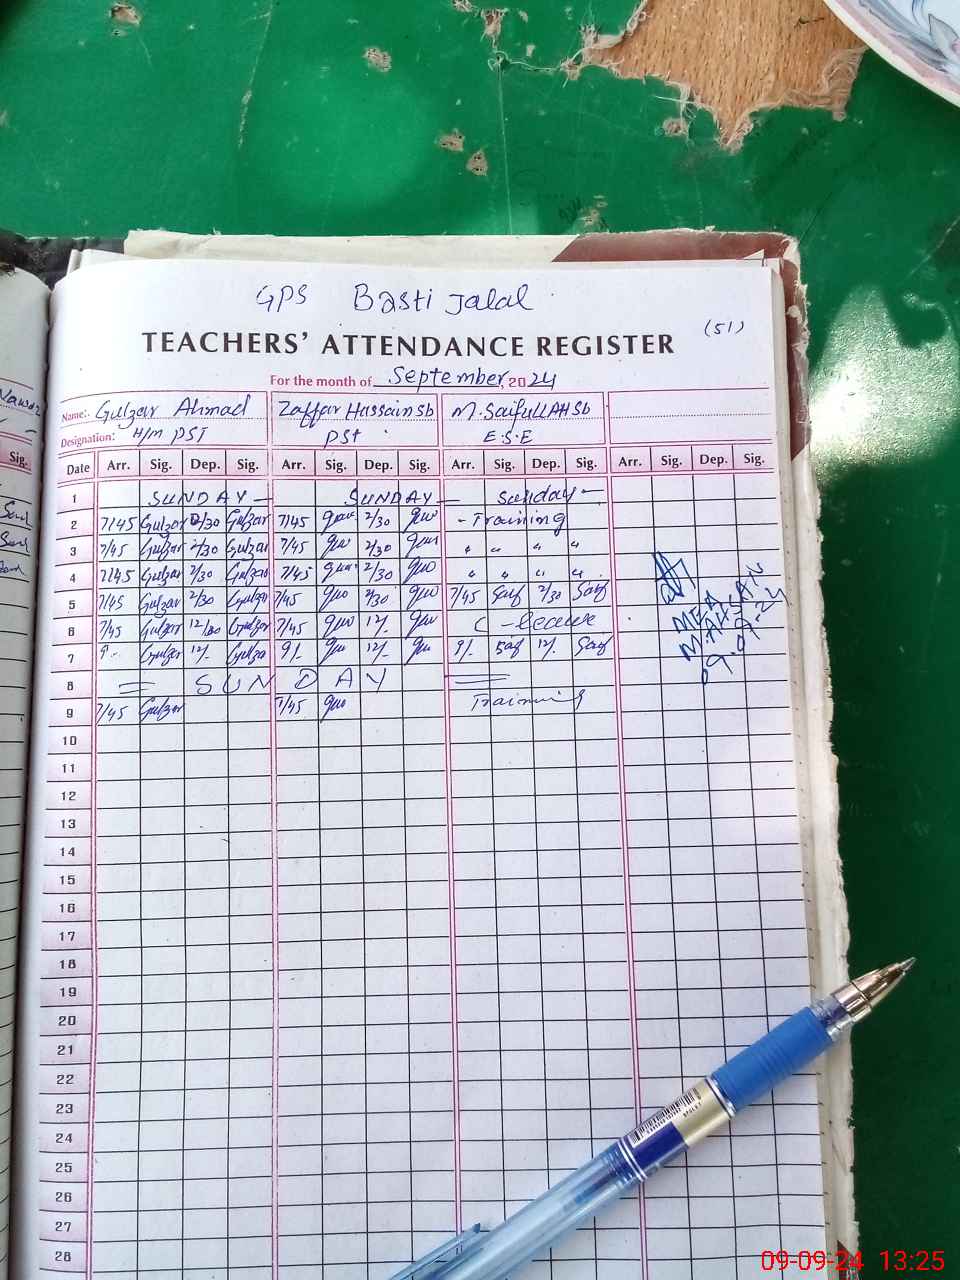 GPS Basti Jalal
(51)
TEACHERS' ATTENDANCE REGISTER
For the month of September, 2024
Name: Gulzar Ahmad Zaffar Hussain Sb M. Saifullah Sb
Designation: H/M PST PST E.S.E
Date Arr. Sig. Dep. Sig. Arr. Sig. Dep. Sig. Arr. Sig. Dep. Sig. Arr. Sig. Dep. Sig.
1 SUNDAY — SUNDAY — Sunday —
2 7/45 Gulzar 2/30 Gulzar 7/45 2/30 - Training
3 7/45 Gulzar 2/30 Gulzar 7/45 2/30 " " " "
4 7/45 Gulzar 2/30 Gulzar 7/45 2/30 " " " "
5 7/45 Gulzar 2/30 Gulzar 7/45 2/30 7/45 Saif 2/30 Saif
6 7/45 Gulzar 12/00 Gulzar 7/45 12/. C - leave
7 9/. Gulzar 12/. Gulza 9/. 12/. 9/. Saif 12/. Saif
8 = SUNDAY =
9 7/45 Gulzar 7/45 Training
MEA
09.09.24
10
11
12
13
14
15
16
17
18
19
20
21
22
23
24
25
26
27
28
Nawaz
Sig.
09-09-24 13:25